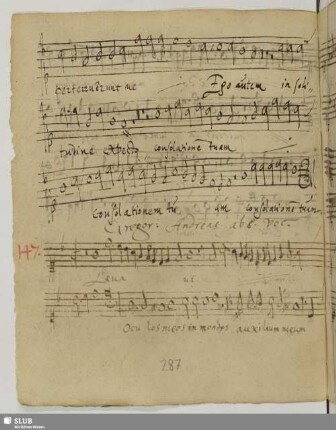 derteruerunt me Ego autem in soli
tudine expecto consolatione tuam
consolationem tu am consolatione tuam
Gregor: Andreas ab 8. Voc.
147.
Leua ui
Ocu los meos in montes auxilium meum
287
SLUB
Wir führen Wissen.